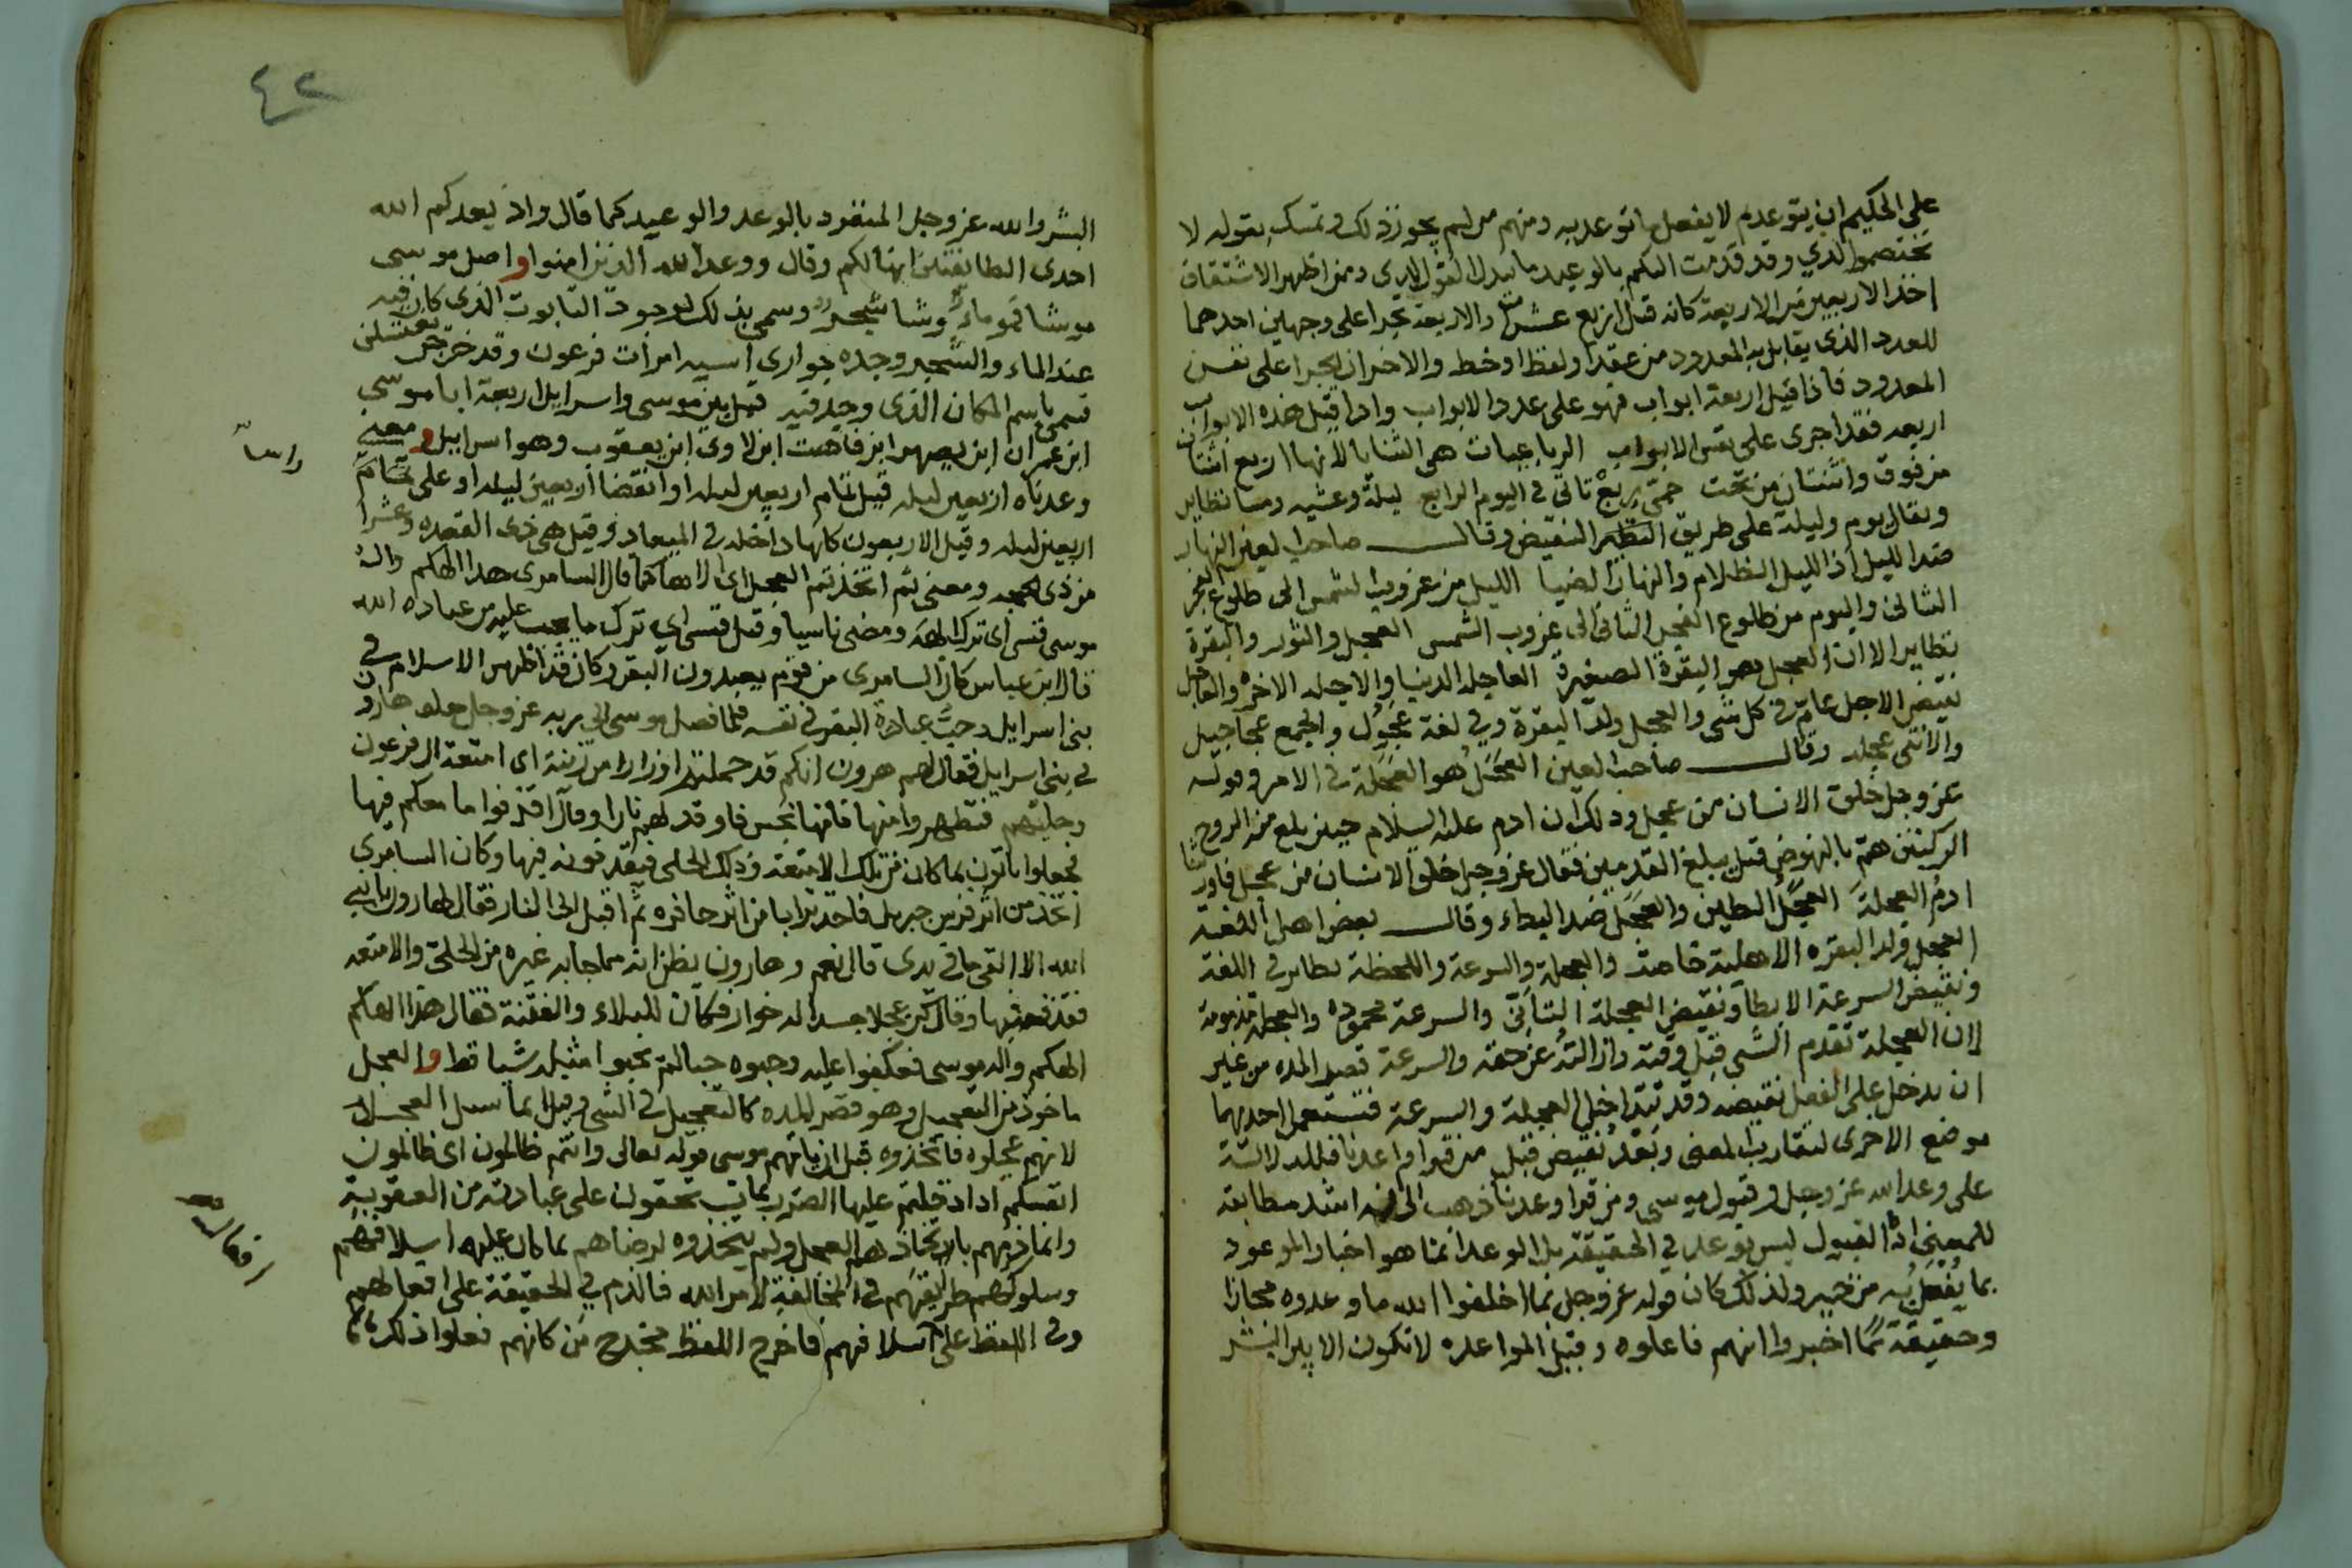 على الحكيم ان يتوعد ثم لا يفعل ما توعد به ومنهم من لم يجوز ذلك وتمسك بقوله لا
تختصموا لدي وقد قدمت اليكم بالوعيد ما يبدل القول لدي ومن اظهر الاشتقاق
اخذ الاربعين من الاربعة كانه قيل اربع عشرات والاربعة تجرا على وجهين احدهما
للعدد الذي يقابل به المعدود من عقد او لفظ او خط والاخر ان يجرا على نفس
المعدود فاذا قيل اربعة ابواب فهو على عدد الابواب واذا قيل هذه الابواب
اربعه فقد اجرى على نفس الابواب الرباعيات هي الثنايا لانها اربع اثنتان
من فوق واثنتان من تحت حمى ربع تاتي في اليوم الرابع ليلة وعشيه ومسا نظاير
ويقال يوم وليلة على طريق النقيض وقال صاحب العين النهار
ضد الليل اذ الليل الظلام والنهار الضيا الليل من غروب الشمس الى طلوع الفجر
الثاني واليوم من طلوع الفجر الثاني الى غروب الشمس العجل والثور والبقرة
نظاير الا ان العجل هو البقرة الصغيرة العاجله الدنيا والاجله الاخره والعاجل
نقيض الاجل عام في كل شي والعجل ولد البقرة وفي لغة عجول والجمع عجاجيل
والانثى عجله وقال صاحب العين العجل هو العجلة في الامر في قوله
عز وجل خلق الانسان من عجل وذلك ان ادم عليه السلام حين بلغ منه الروح
الركبتين هم بالنهوض قبل يبلغ القدمين فقال عز وجل خلق الانسان من عجل فاورثنا
ادم العجلة العجل الطين والعجل ضد البطاء وقال بعض اهل اللغة
العجل ولد البقره الاهلية خاصة والعجلة والسرعة واللحظة نظاير في اللغة
ونقيض السرعة الابطا ونقيض العجلة التانى والسرعة محموده والعجلة مذمومة
لان العجلة تقدم الشي قبل وقته وازالته عن حقه والسرعة قصد المده من غير
ان يدخل على الفعل نقيضه وقد تتداخل العجلة والسرعة فتستعمل احديهما
موضع الاخرى لتقارب المعنى وبعد نقيض قبل من قرا واعدنا فللدلالة
على وعد الله عز وجل وقبول موسى ومن قرا وعدنا ذهب الى انه اشد مطابقة
للمعنى اذ القبول ليس بوعد في الحقيقة بل الوعد انما هو اخبار الموعود
بما يفعل به من خير ولذلك كان قوله عز وجل بما اخلفوا الله ما وعدوه مجازا
وحقيقة بما اخبروا انهم فاعلوه وقيل المواعده لا تكون الا بين البشر
٤٢
البشر والله عز وجل المنفرد بالوعد والوعيد كما قال واذ يعدكم الله
احدى الطايفتين انها لكم وقال ووعد الله الذين امنوا واصل موسى
موشا فمو ماء وشا شجر وسمي بذلك لوجود التابوت الذي كان فيه
عند الماء والشجر وجده جواري اسيه امرات فرعون وقد خرجن يغتسلن
فسمي باسم المكان الذي وجد فيه قيل بين موسى واسرايل اربعة ابا موسى
ابن عمران ابن يصهر ابن فاهت ابن لاوى ابن يعقوب وهو اسرايل ومعنى
وعدناه اربعين ليله قيل تمام اربعين ليله او انقضا اربعين ليله او على تمام
اربعين ليله وقيل الاربعون كلها داخله في الميعاد وقيل هي ذي القعده وعشرا
من ذي الحجه ومعنى ثم اتخذتم العجل اي الاها كما قال السامري هذا الهكم واله
موسى فنسى اي ترك الهه ومضى ناسيا وقيل فنسى اي ترك ما يجب عليه من عباده الله
قال ابن عباس كان السامري من قوم يعبدون البقر وكان قد اظهر الاسلام في
بني اسرايل وحب عبادة البقر في نفسه فلما فصل موسى الى ربه عز وجل خلف هارون
في بني اسرايل فقال لهم هرون انكم قد حملتم اوزارا من زينة اي امتعة ال فرعون
وحليهم فتطهروا منها فانها نجس فاوقد لهم نارا وقال اقذفوا ما معكم فيها
فجعلوا ياتون بما كان من تلك الامتعة وذلك الحلى فيقذفونه فيها وكان السامري
اخذ من اثر فرس جبريل فاخذ ترابا من اثر حافره ثم اقبل الى النار فقال لهارون يا نبي
الله الا القي ما في يدي قال نعم وهارون يظن انه مما جا به غيره من الحلى والامتعه
فقذفه فيها وقال كن عجلا جسدا له خوار فكان للبلاء والفتنة فقال هذا الهكم
الهكم واله موسى فعكفوا عليه وحبوه حبا لم يحبوا مثله شيا قط والعجل
ماخوذ من التعجيل وهو قصر المده كالتعجيل في الشي وقيل انما سمي العجل
لانهم عجلوه فاتخذوه قبل ان ياتيهم موسى قوله تعالى وانتم ظالمون اي ظالمون
انفسكم اذا ادخلتم عليها الضرر بما تستحقون على عبادته من العقوبة
وانما ذمهم باتخاذهم العجل ولم يتخذوه لرضاهم بما كان عليه اسلافهم
وسلوكهم طريقهم في المخالفة لامر الله فالذم في الحقيقة على افعالهم
وفي اللفظ على اسلافهم فاخرج اللفظ مخرج من كانهم فعلوا ذلك